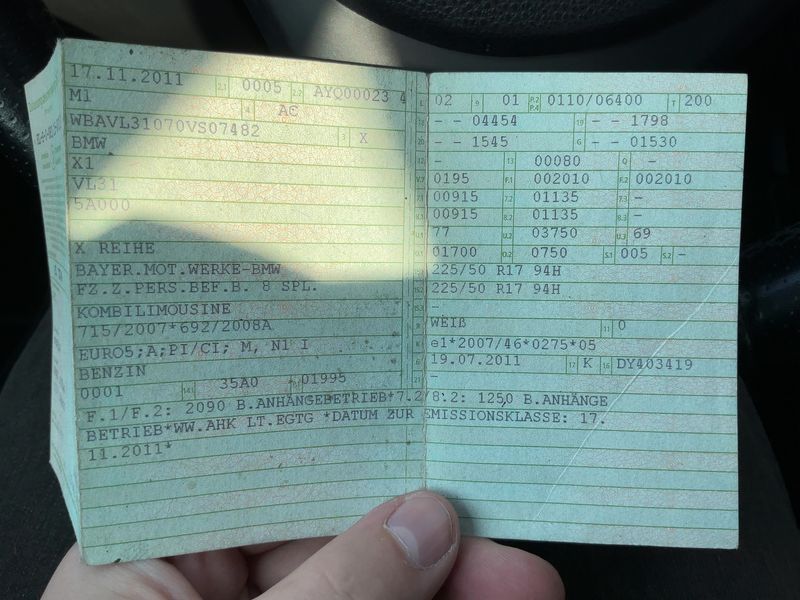 17.11.2011 2.1 0005 2.2 AYQ00023 4
M1 4 AC
WBAVL31070VS07482 3 X
BMW
X1
VL31
5A000
X REIHE
BAYER.MOT.WERKE-BMW
FZ.Z.PERS.BEF.B. 8 SPL.
KOMBILIMOUSINE
715/2007*692/2008A
EURO5;A;PI/CI; M, N1 I
BENZIN
0001 14.1 35A0 P.1 01995
L 02 9 01 P.2 P.4 0110/06400 T 200
18 - - 04454 19 - - 1798
20 - - 1545 G - - 01530
12 - 13 00080 Q -
V.7 0195 F.1 002010 F.2 002010
7.1 00915 7.2 01135 7.3 -
8.1 00915 8.2 01135 8.3 -
U.1 77 U.2 03750 U.3 69
O.1 01700 O.2 0750 S.1 005 S.2 -
15.1 225/50 R17 94H
15.2 225/50 R17 94H
15.3 -
R WEIß 11 0
K e1*2007/46*0275*05
6 19.07.2011 17 K 16 DY403419
21 -
F.1/F.2: 2090 B.ANHÄNGEBETRIEB*7.2/8.2: 1250 B.ANHÄNGE
BETRIEB*WW.AHK LT.EGTG *DATUM ZUR EMISSIONSKLASSE: 17.
11.2011*